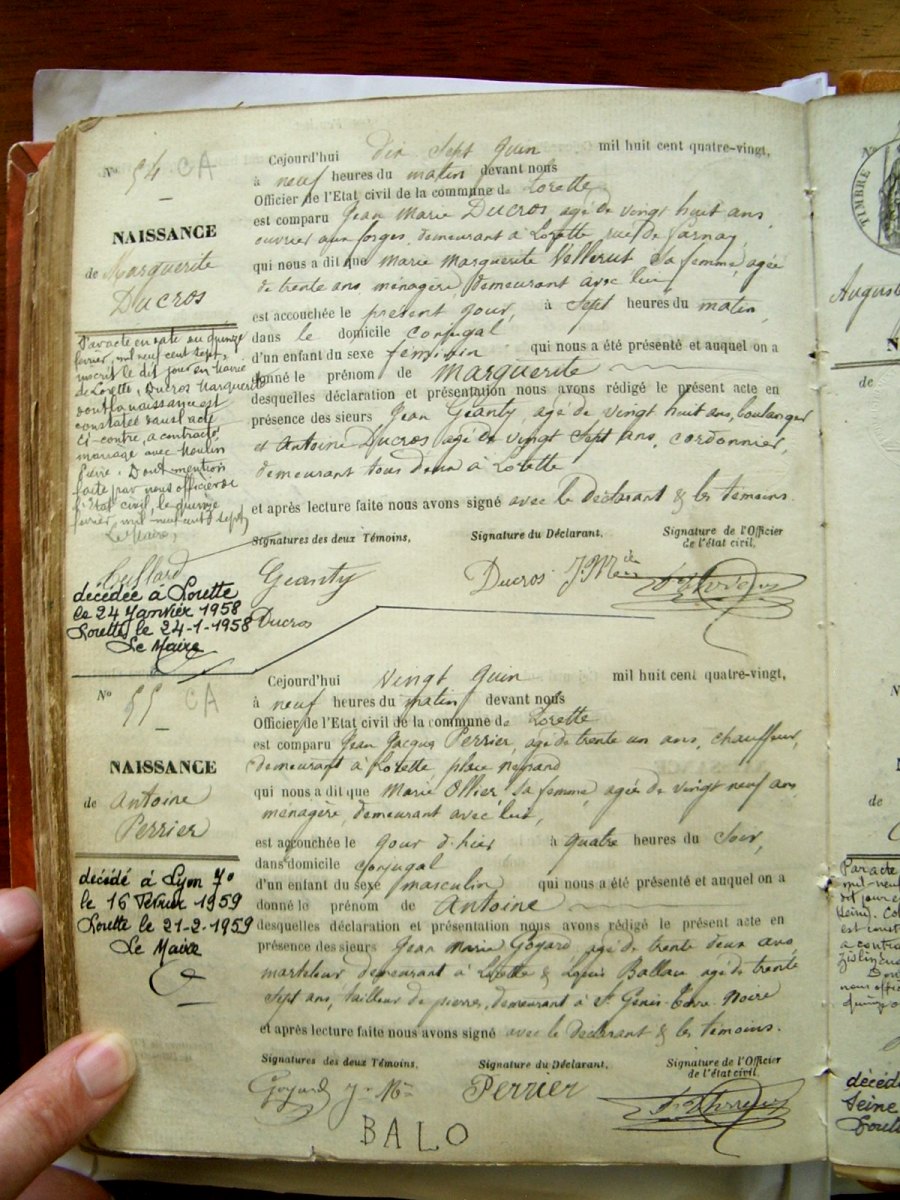 N° 54 CA
NAISSANCE
de Marguerite
Ducros
Par acte en date du quinze
février, mil neuf cent sept,
inscrit le dit jour en Mairie
de Lorette, Ducros Marguerite
dont la naissance est
constatée dans l'acte
ci-contre, a contracté
mariage avec Moulin
Pierre. Dont mention
faite par nous officier de
l'Etat civil, le quinze
février, mil neuf cent sept,
Le Maire,
décédée à Lorette
le 24 Janvier 1958
Lorette, le 24-1-1958
Le Maire
Cejourd'hui dix sept Juin mil huit cent quatre-vingt,
à neuf heures du matin devant nous
Officier de l'Etat civil de la commune de Lorette
est comparu Jean Marie Ducros agé de vingt huit ans
ouvrier aux forges, demeurant à Lorette, rue de
qui nous a dit que Marie Marguerite Vellerut sa femme, agée
de trente ans ménagère, demeurant avec lui
est accouchée le présent jour, à sept heures du matin,
dans le domicile conjugal
d'un enfant du sexe féminin qui nous a été présenté et auquel on a
donné le prénom de Marguerite
desquelles déclaration et présentation nous avons rédigé le présent acte en
présence des sieurs Jean Géanty agé de vingt huit ans, boulanger
et Antoine Ducros agé de vingt sept ans, cordonnier,
demeurant tous deux à Lorette
et après lecture faite nous avons signé avec le Déclarant & les témoins.
Signatures des deux Témoins, Signature du Déclarant, Signature de l'Officier
de l'état civil.
Géanty Ducros J. M
Ducros
N° 55 CA
NAISSANCE
de Antoine
Perrier
décédé à Lyon 7e
le 16 Février 1959
Lorette le 21-2-1959
Le Maire
Cejourd'hui vingt Juin mil huit cent quatre-vingt,
à neuf heures du matin devant nous
Officier de l'Etat civil de la commune de Lorette
est comparu Jean Jacques Perrier, agé de trente un ans, chauffeur,
demeurant à Lorette place Neyrand
qui nous a dit que Marie Ollier sa femme, agée de vingt neuf ans
ménagère, demeurant avec lui,
est accouchée le jour d'hier à quatre heures du soir,
dans domicile conjugal
d'un enfant du sexe masculin qui nous a été présenté et auquel on a
donné le prénom de Antoine
desquelles déclaration et présentation nous avons rédigé le présent acte en
présence des sieurs Jean Marie Goyard agé de trente deux ans,
marteleur demeurant à Lorette & Louis Ballau agé de trente
sept ans, tailleur de pierres, demeurant à St Genis-Terre-Noire
et après lecture faite nous avons signé avec le declarant & les témoins.
Signatures des deux Témoins. Signature du Déclarant, Signature de l'Officier
de l'état civil.
Goyard J. Perrier
BALO
N°
TIMBRE
August
N
de
N°
N
de
Par acte
mil-neuf
dit jour
a contra
Don
nous offi
quinze
décédé
Seine
Lorette